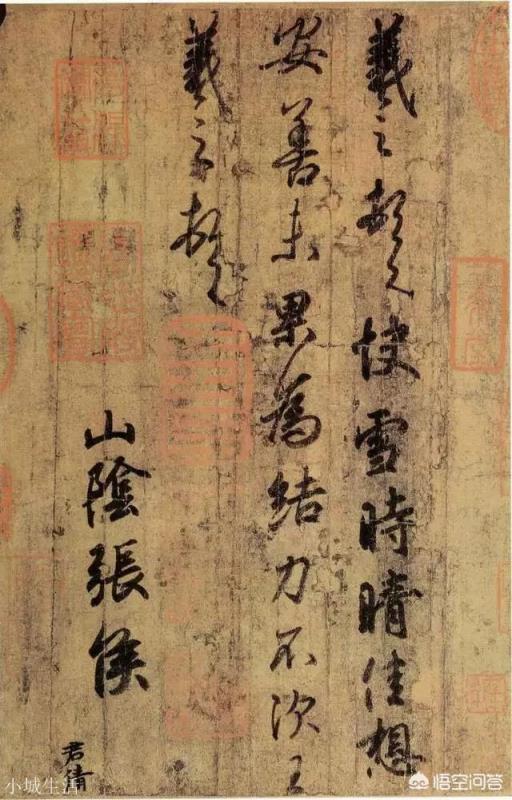 羲之頓首快雪時晴佳想
安善未果為結力不次王
羲之頓首
山陰張侯
君倩
小城生活
悟空问答